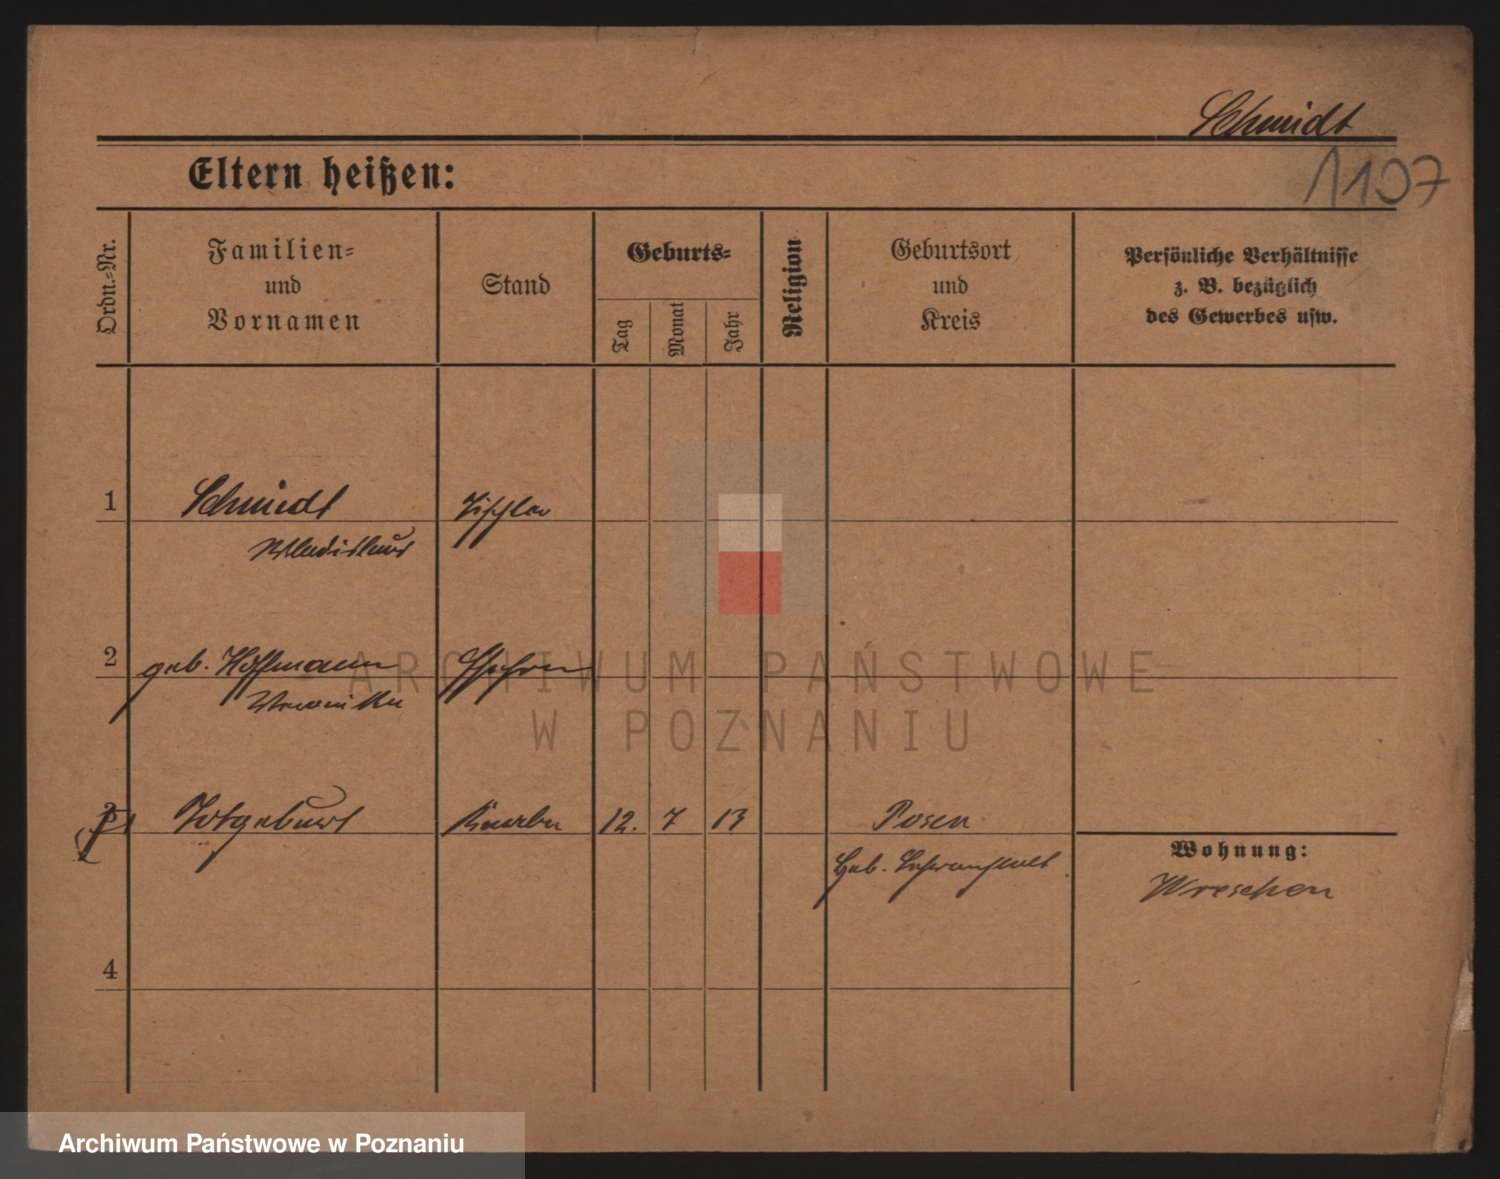 Schmidt
1107
Eltern heißen:
Ordn.-Nr.
Familien-
und
Vornamen
Stand
Geburts-
Tag
Monat
Jahr
Religion
Geburtsort
und
Kreis
Persönliche Verhältnisse
z. B. bezüglich
des Gewerbes usw.
1 Schmidt Tischler
Wladislaus
2 geb. Hoffmann Ehefrau
Veronika
3 Totgeburt Knabe 12. 7 13 Posen
Wohnung:
Heb. Lehranstalt.
Wreschen
4
ARCHIWUM PAŃSTWOWE
W POZNANIU
Archiwum Państwowe w Poznaniu